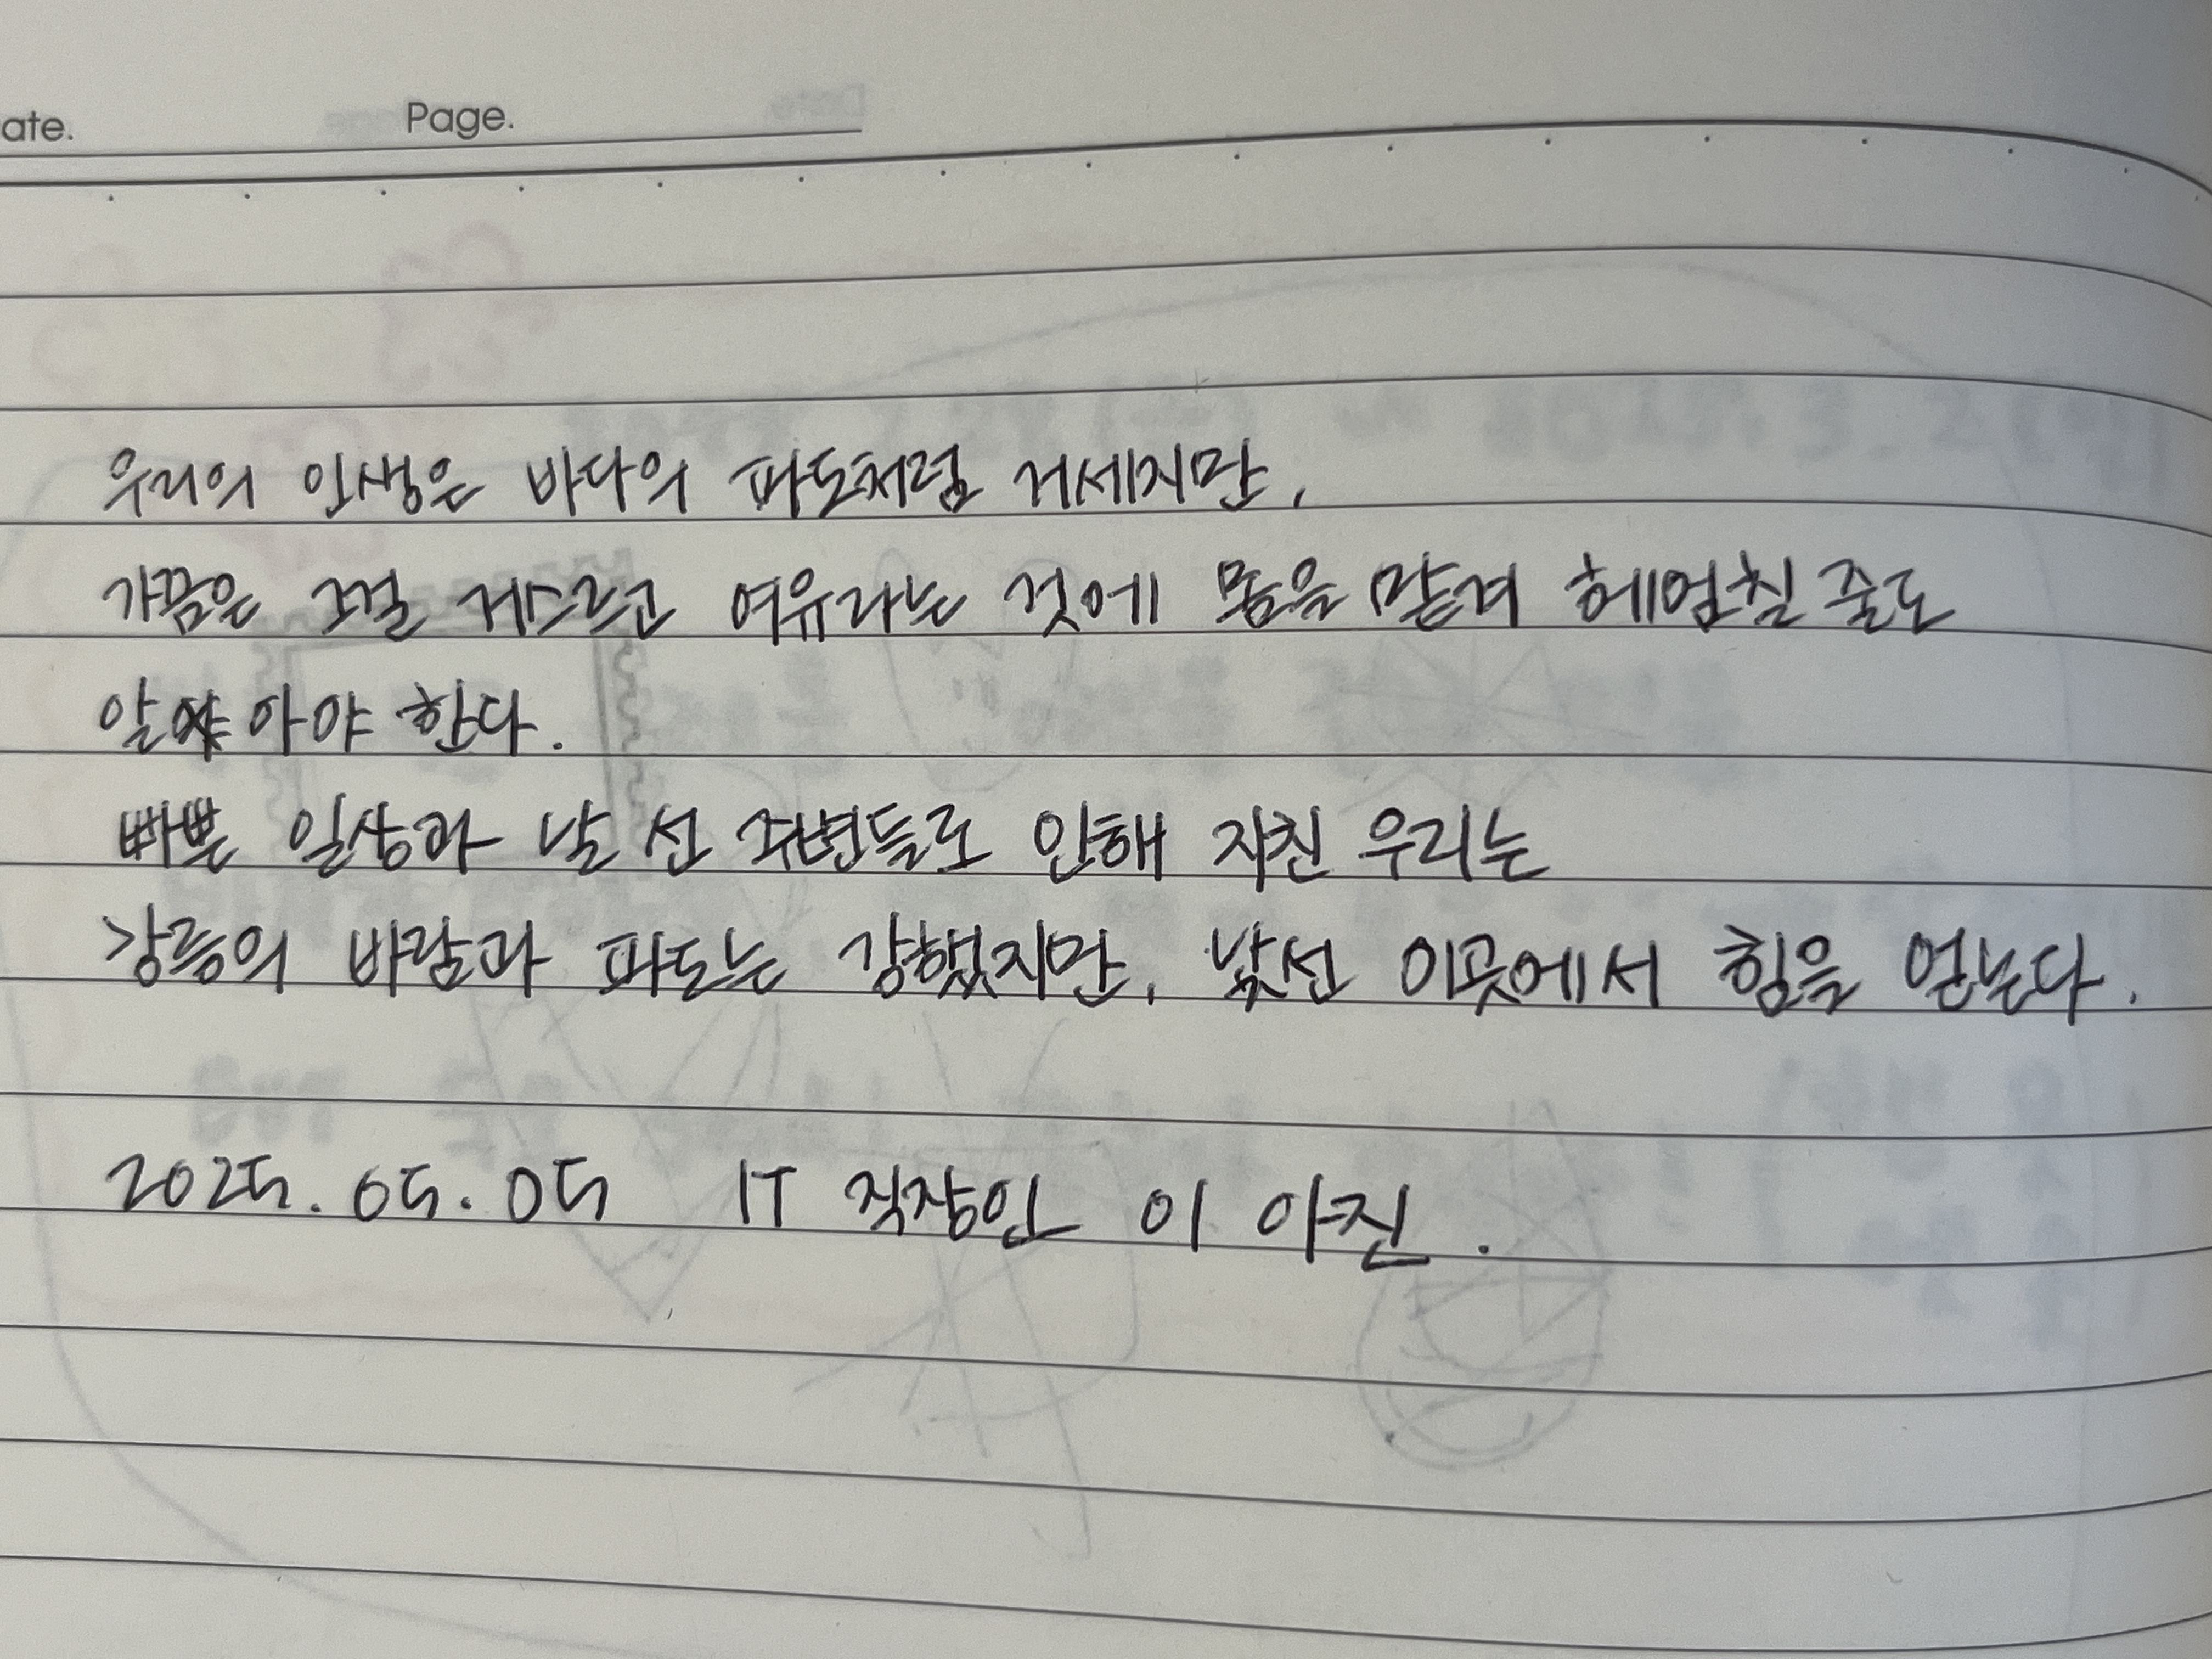 ate.
Page.
우리의 인생은 바다의 파도처럼 거세지만,
가끔은 그걸 거스르고 여유라는 것에 몸을 맡겨 헤엄칠 줄도
알아야 한다.
빠쁜 일상과 날 선 주변들로 인해 지친 우리는
강릉의 바람과 파도는 강했지만, 낯선 이곳에서 힘을 얻는다.
2025. 05. 05 IT 직장인 이 아진.